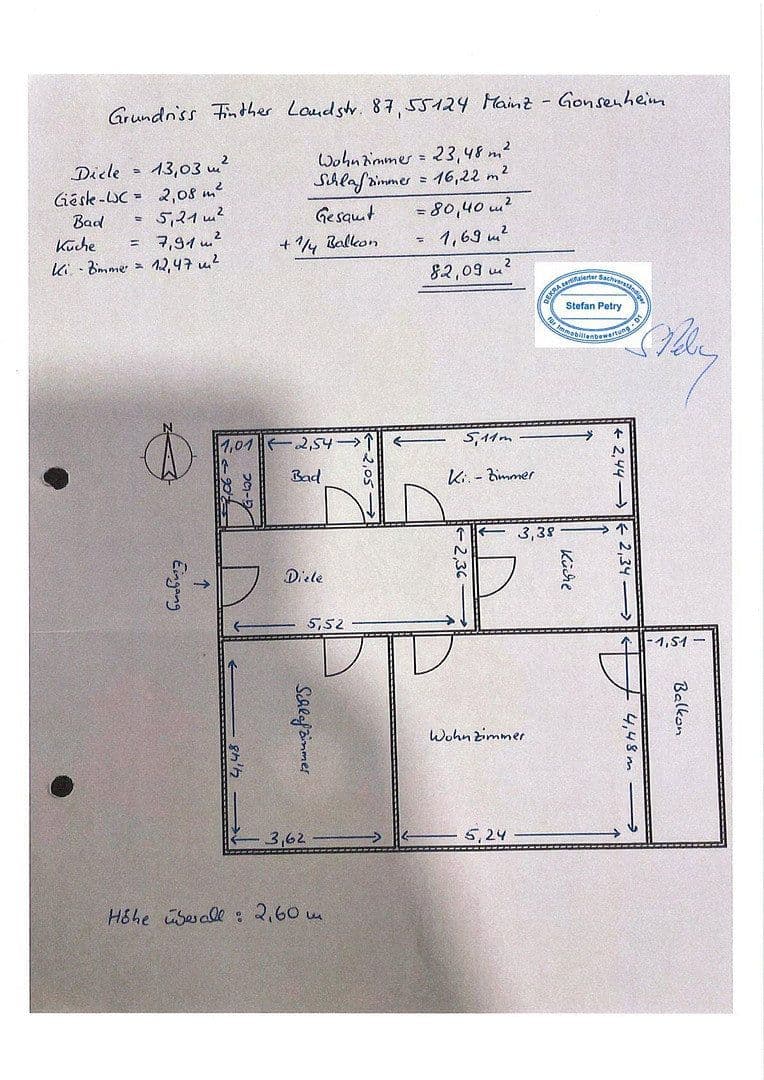 Grundriss Finther Landstr. 87, 55124 Mainz - Gonsenheim
Diele = 13,03 m²
Gäste-WC = 2,08 m²
Bad = 5,21 m²
Küche = 7,91 m²
Ki.-Zimmer = 12,47 m²
Wohnzimmer = 23,48 m²
Schlafzimmer = 16,22 m²
Gesamt = 80,40 m²
+ 1/4 Balkon = 1,69 m²
82,09 m²
DEKRA zertifizierter Sachverständiger
Stefan Petry
für Immobilienbewertung - D1
S. Petry
N
1,01
2,54
5,11m
2,05
2,44
G-WC
Bad
Ki.-Zimmer
3,38
2,34
2,36
Küche
Eingang
Diele
5,52
1,51
Schlafzimmer
4,48
Wohnzimmer
4,48 m
Balkon
3,62
5,24
Höhe überall : 2,60 m